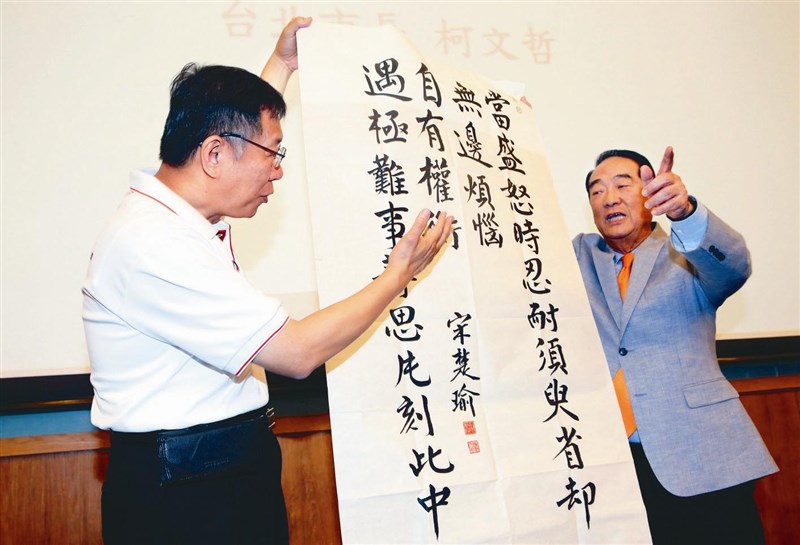 台北市長 柯文哲
當盛怒時忍耐須臾省却
無邊煩惱
遇極難事思片刻此中
自有權衡
宋楚瑜